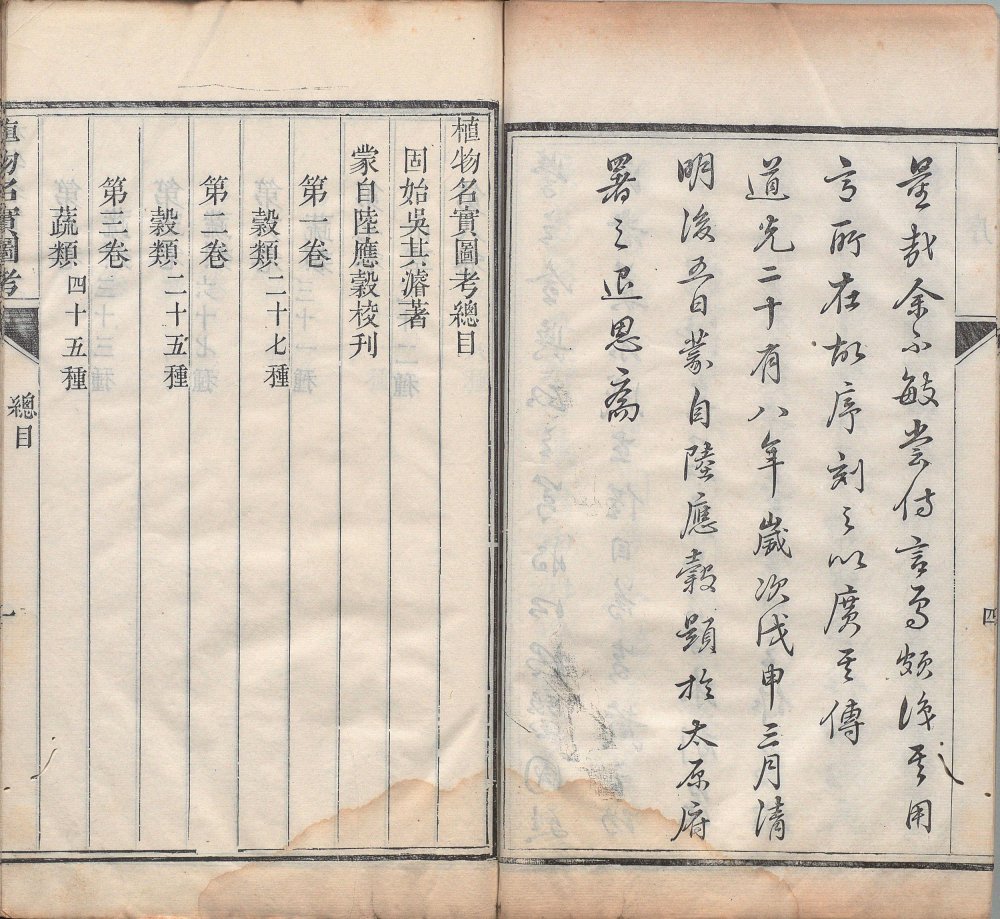 量哉余不敏嘗侍言焉頗識其用
言所在故序刻之以廣其傳
道光二十有八年歲次戊申三月清
明後五日蒙自陸應穀題於太原府
署之退思齋
四
植物名實圖考總目
固始吳其濬著
蒙自陸應穀校刊
第一卷
穀類二十七種
第二卷
穀類二十五種
第三卷
蔬類四十五種
植物名實圖考
總目
一